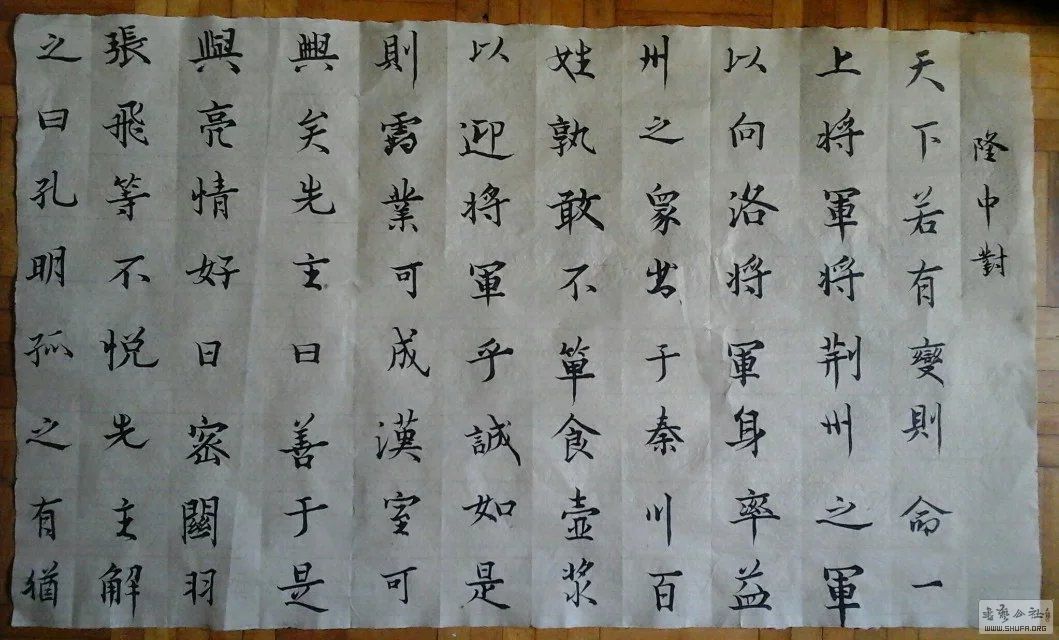 隆中對
天下若有變則命一
上将軍将荆州之軍
以向洛将軍身率益
州之眾出于秦川百
姓孰敢不箪食壺浆
以迎将軍乎誠如是
則霸業可成漢室可
興矣先主曰善于是
與亮情好日密關羽
張飛等不悦先主解
之曰孔明孤之有猶
WWW.SHUFA.ORG